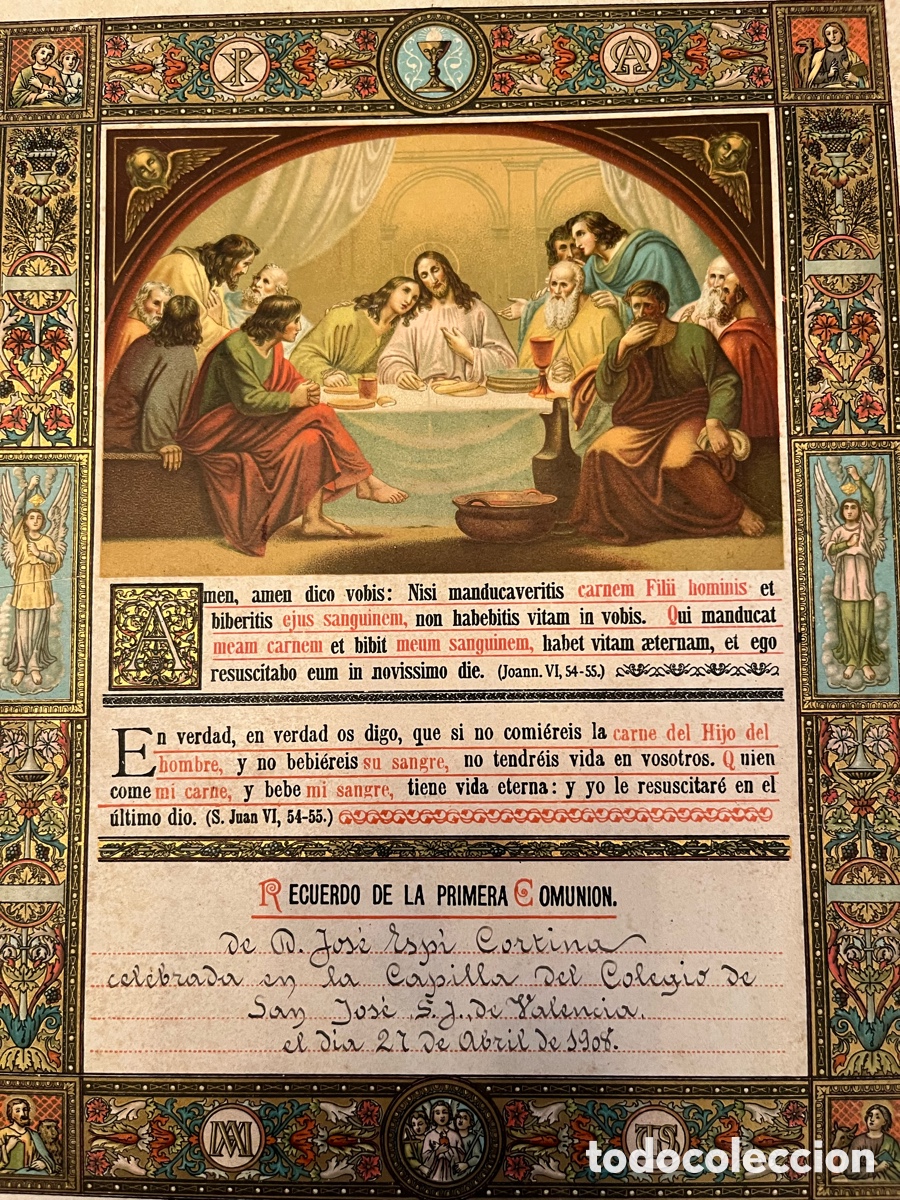 Amen, amen dico vobis: Nisi manducaveritis carnem Filii hominis et
biberitis ejus sanguinem, non habebitis vitam in vobis. Qui manducat
meam carnem et bibit meum sanguinem, habet vitam æternam, et ego
resuscitabo eum in novissimo die. (Joann. VI, 54-55.)
En verdad, en verdad os digo, que si no comiéreis la carne del Hijo del
hombre, y no bebiéreis su sangre, no tendréis vida en vosotros. Quien
come mi carne, y bebe mi sangre, tiene vida eterna: y yo le resuscitaré en el
último dio. (S. Juan VI, 54-55.)
RECUERDO DE LA PRIMERA COMUNION.
de D. José Espí Cortina
celebrada en la Capilla del Colegio de
San José S.J., de Valencia.
el día 27 de Abril de
todocoleccion